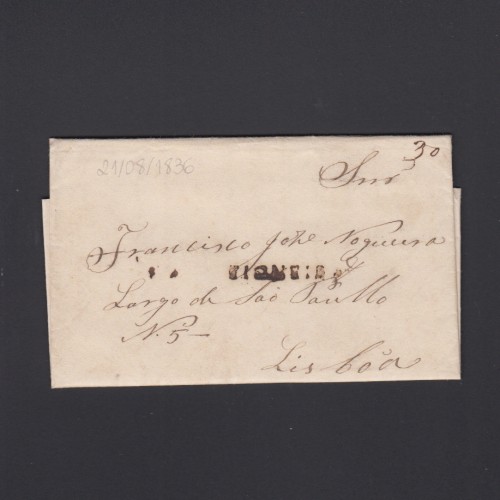 30
21/08/1836
Snr
Francisco José Nogueira
Largo de São Paullo
N. 5
Lisbôa